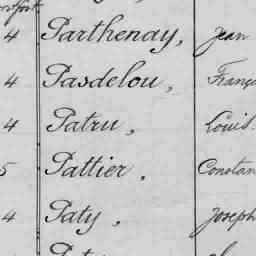 4 Parthenay, Jean
4 Pasdelou,
4 Patru, Louis
5 Pattier, Constan
4 Paty, Joseph